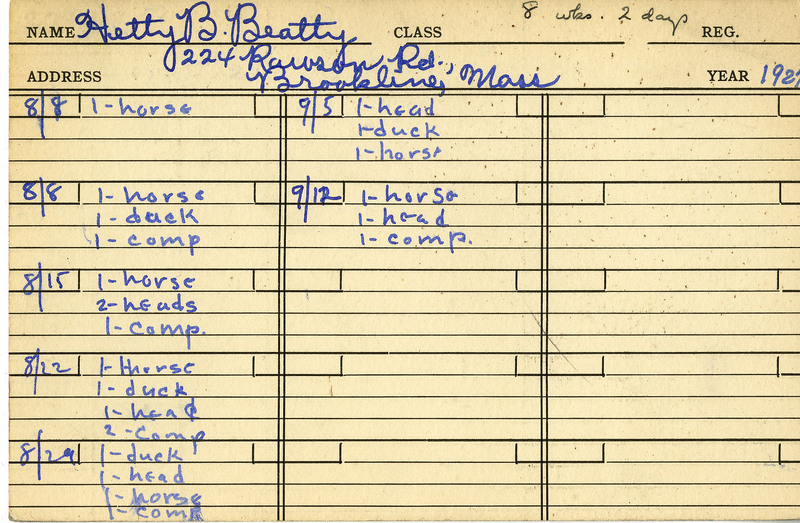 NAME Hetty B. Beatty CLASS 8 wks. 2 days REG.
224 Rawson Rd.,
ADDRESS Brookline, Mass YEAR 1927
8/8 1-horse
8/8 1-horse
1-duck
1-comp
8/15 1-horse
2-heads
1-comp.
8/22 1-horse
1-duck
1-head
2-comp
8/29 1-duck
1-head
1-horse
1-comp
9/5 1-head
1-duck
1-horse
9/12 1-horse
1-head
1-comp.